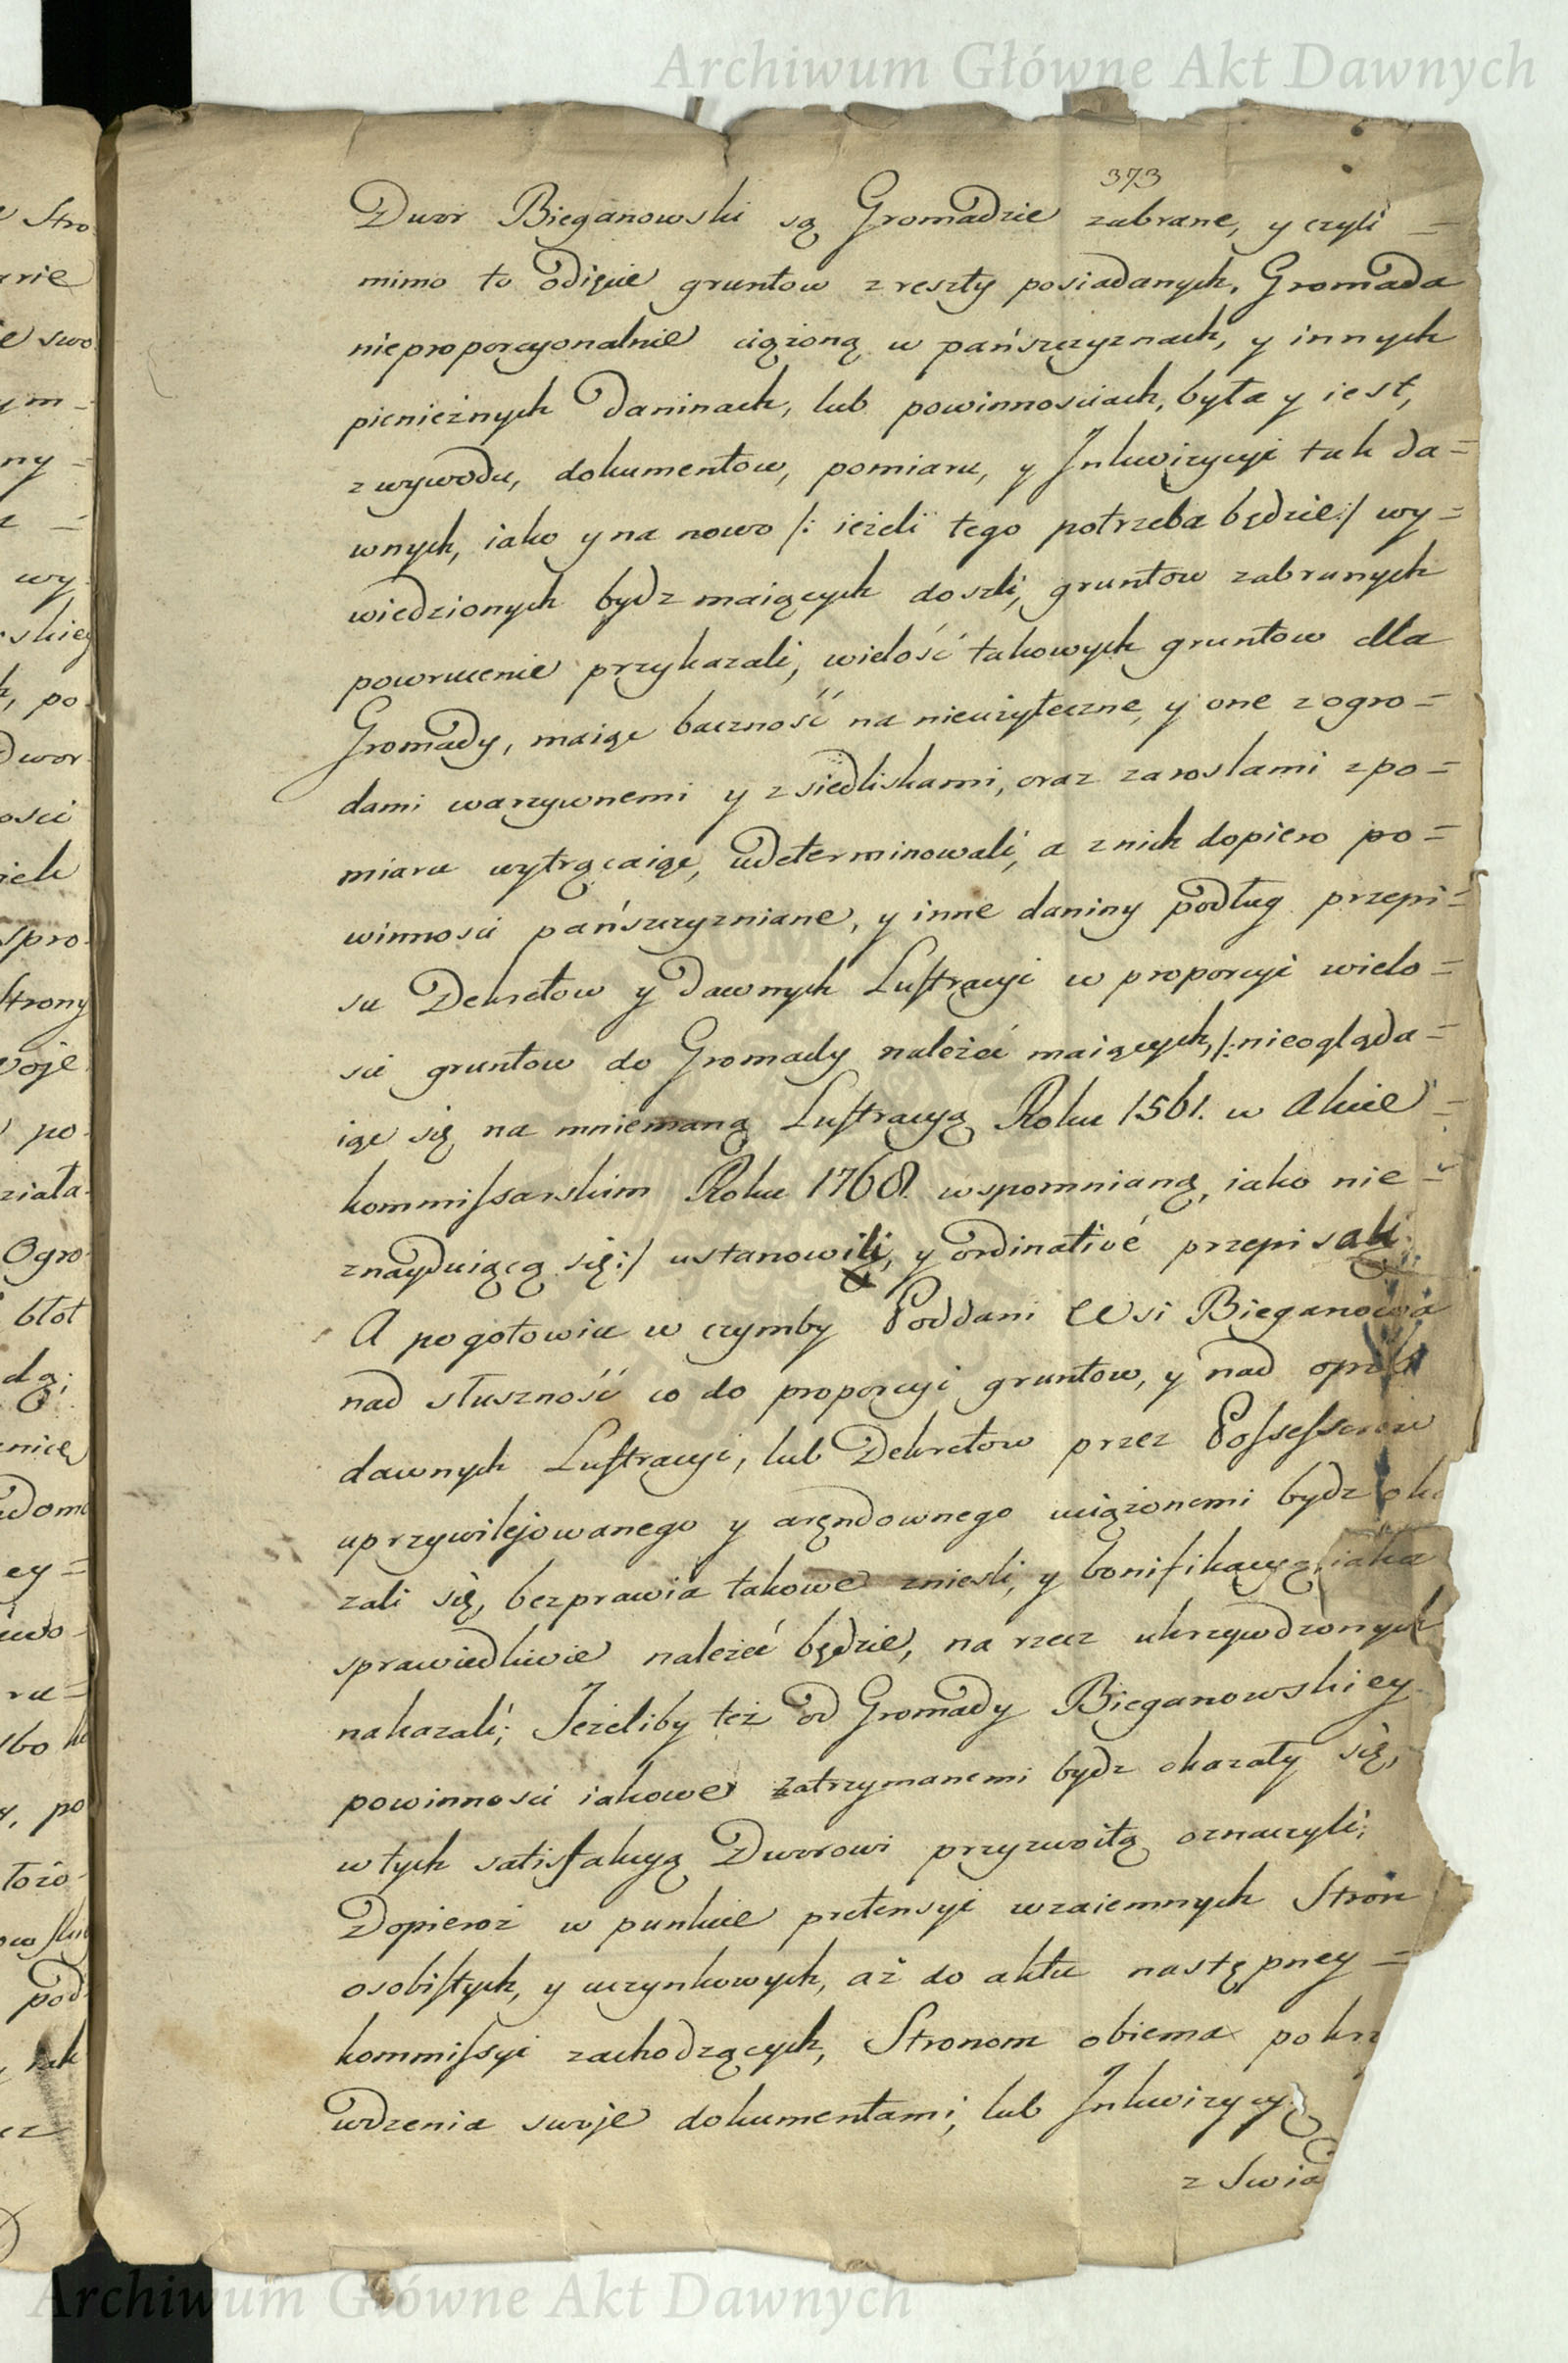 Archiwum Główne Akt Dawnych
373
Dwor Bieganowski są Gromadzie zabrane, y czyli =
mimo to odięcie gruntow z reszty posiadanych, Gromada
nieproporcyonalnie ciążoną w pańszczyznach, y innych
pienieżnych daninach, lub powinnosciach, była y iest,
z wywodu, dokumentow, pomiaru, y Inkwizycyi tak da=
wnych, iako y na nowo /: ieżeli tego potrzeba będzie :/ wy=
wiedzionych bydz maiących doszli, gruntow zabranych
powrucenie przykazali, wielość takowych gruntow dla
Gromady, maiąc baczność na nieużyteczne, y one z ogro=
dami warzywnemi y z siedliskami, oraz zaroslami z po=
miaru wytrącaiąc, udeterminowali, a z nich dopiero po=
winnosci pańszczyzniane, y inne daniny podług przepi=
su Dekretow y dawnych Lustracyi w proporcyi wielo=
sci gruntow do Gromady należeć maiących, /: nieogląda=
iąc się na mniemaną Lustracyą Roku 1561. w Akcie =
kommissarskim Roku 1768. wspomnianą, iako nie =
znayduiącą się :/ ustanowili, y ordinativé przepisali.
A pogotowiu w czymby Poddani Wsi Bieganowa
nad słuszność co do proporcyi gruntow, y nad opis
dawnych Lustracyi, lub Dekretow przez Possessorow
uprzywilejowanego y arędownego uciążonemi bydz oka
zali się, bezprawia takowe zniesli, y bonifikacyą, iaka
sprawiedliwie należeć będzie, na rzecz ukrzywdzonych
nakazali; Jeżeliby też od Gromady Bieganowskiey
powinnosci iakowe zatrzymanemi bydz okazały się,
w tych satisfakcyą Dworowi przyzwoitą oznaczyli;
Dopieroż w punkcie pretensyi wzaiemnych Stron
osobistych, y uczynkowych, aż do aktu następney =
kommissyi zachodzących, Stronom obiema pokrz
wdzenia swoje dokumentami, lub Inkwizycyą
z Swia
Archiwum Główne Akt Dawnych